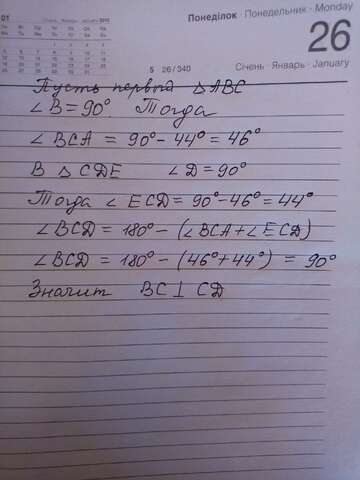 01
Понеділок · Понедельник · Monday
26
5 26 / 340
Січень · Январь · January
Пусть первый △ABC
∠B = 90°. Тогда
∠BCA = 90° - 44° = 46°
В △ CDE ∠D = 90°
Тогда ∠ECD = 90° - 46° = 44°
∠BCD = 180° - (∠BCA + ∠ECD)
∠BCD = 180° - (46° + 44°) = 90°
Значит BC ⊥ CD